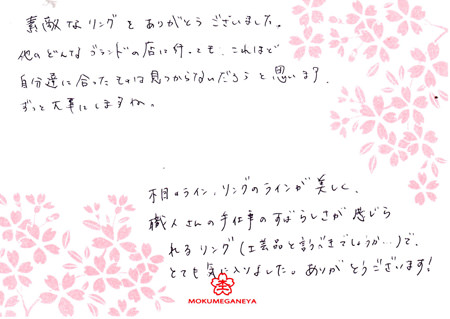 素敵なリングをありがとうございました。
他のどんなブランドの店に行っても、これほど
自分達に合ったものは見つからないだろうと思います。
ずっと大事にしますね。
木目のライン、リングのラインが美しく、
職人さんの手仕事のすばらしさが感じら
れるリング(工芸品と言うべきでしょうか…)で、
とても気に入りました。ありがとうございます!
MOKUMEGANEYA